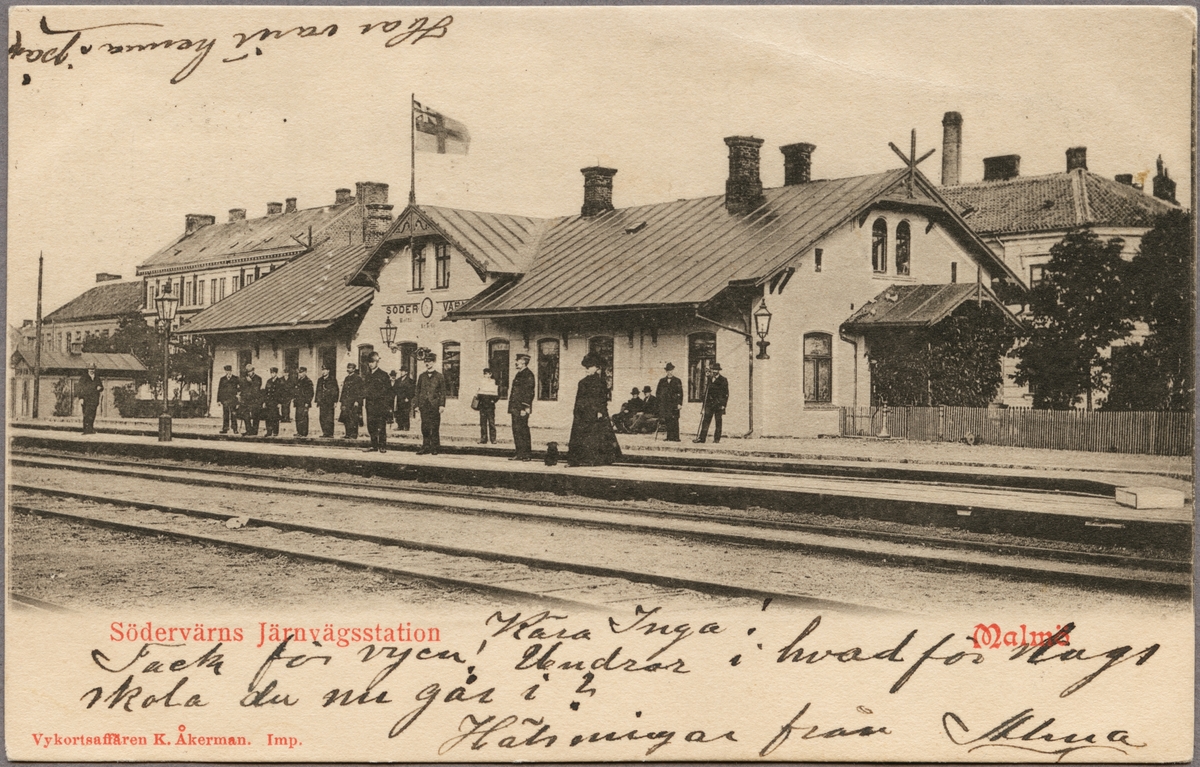 Har varit hemma i påsk
SÖDER VÄRN
Södervärns Järnvägsstation
Malmö
Kära Inga!
Tack för vycn! Undrar i hvad för slags
skola du nu går i?
Hälsningar från Alma
Vykortsaffären K. Åkerman. Imp.